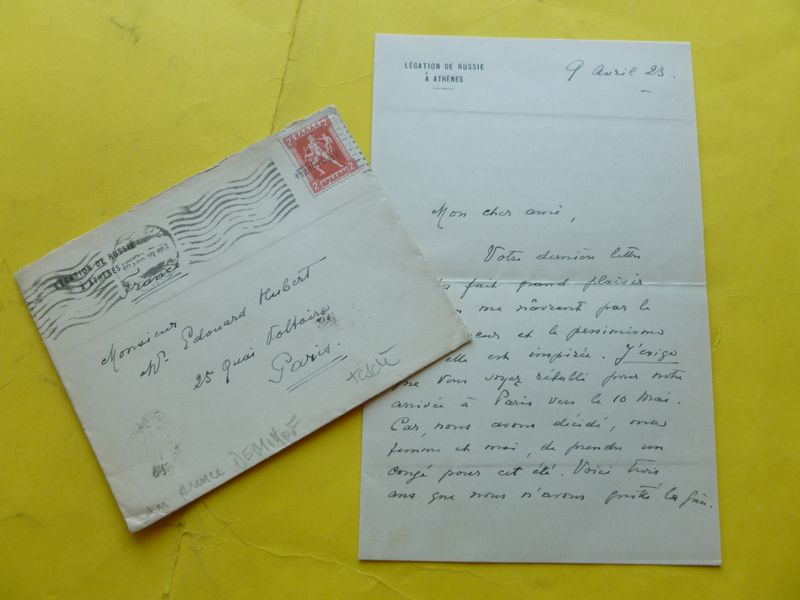 LÉGATION DE RUSSIE
À ATHÈNES
9 Avril 23.
Mon cher ami,
Votre dernière lettre
fait grand plaisir
me navrant par le
et le pessimisme
elle est inspirée. J'exige
que vous soyez rétabli pour notre
arrivée à Paris vers le 10 Mai.
Car, nous avons décidé, ma
femme et moi, de prendre un
congé pour cet été. Voici trois
ans que nous n'avons quitté la
LÉGATION DE RUSSIE
À ATHÈNES
France
Monsieur
Mr. Edouard Hubert
25 Quai Voltaire
Paris.
texte
DEMIDOF
2 2
ΕΛΛΑΣ
2 2